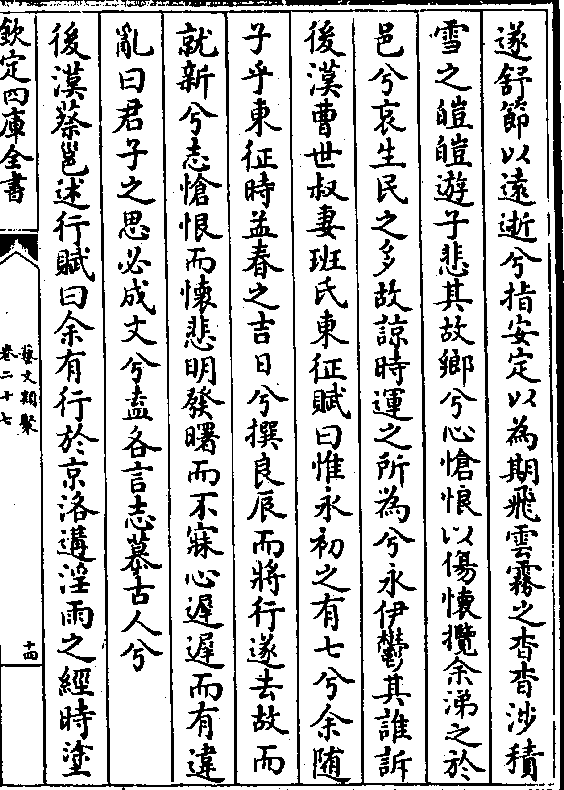 遂舒節以遠逝兮指安定以為期飛雲霧之杳杳涉積
雪之皚皚遊子悲其故鄉兮心愴悢以傷懷攬余涕之於
邑兮哀生民之多故諒時運之所為兮永伊鬱其誰訴
後漢曹世叔妻班氏東征賦曰惟永初之有七兮余随
子乎東征時孟春之吉日兮撰良辰而將行遂去故而
就新兮志愴恨而懷悲明發曙而不寐心遲遲而有違
亂曰君子之思必成文兮盍各言志慕古人兮
後漢蔡邕述行賦曰余有行於京洛遘淫雨之經時塗
欽定四庫全書
藝文類聚
卷二十七
十四